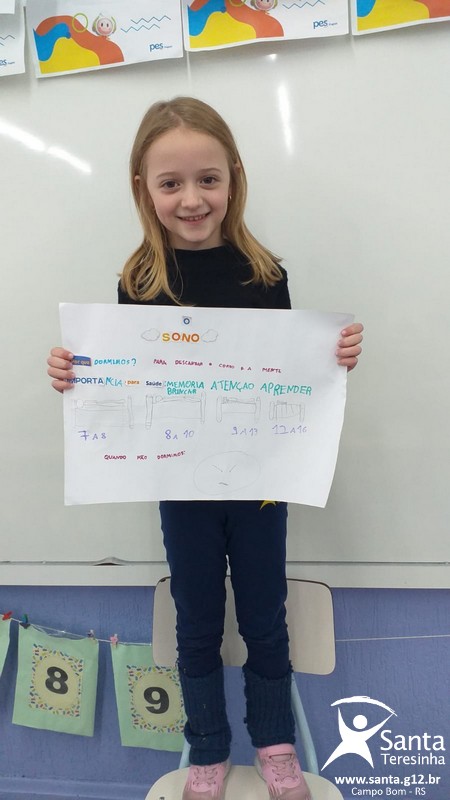 pes
pes
pes
pes
O
SONO
DORMIMOS? PARA DESCANSAR O CORPO E A MENTE
IMPORTANCIA: para Saúde: MEMÓRIA ATENÇÃO APRENDER
BRINCAR
7 A 8 8 A 10 9 A 13 12 A 16
QUANDO NÃO DORMIMOS:
8
9
Santa
Teresinha
www.santa.g12.br
Campo Bom - RS